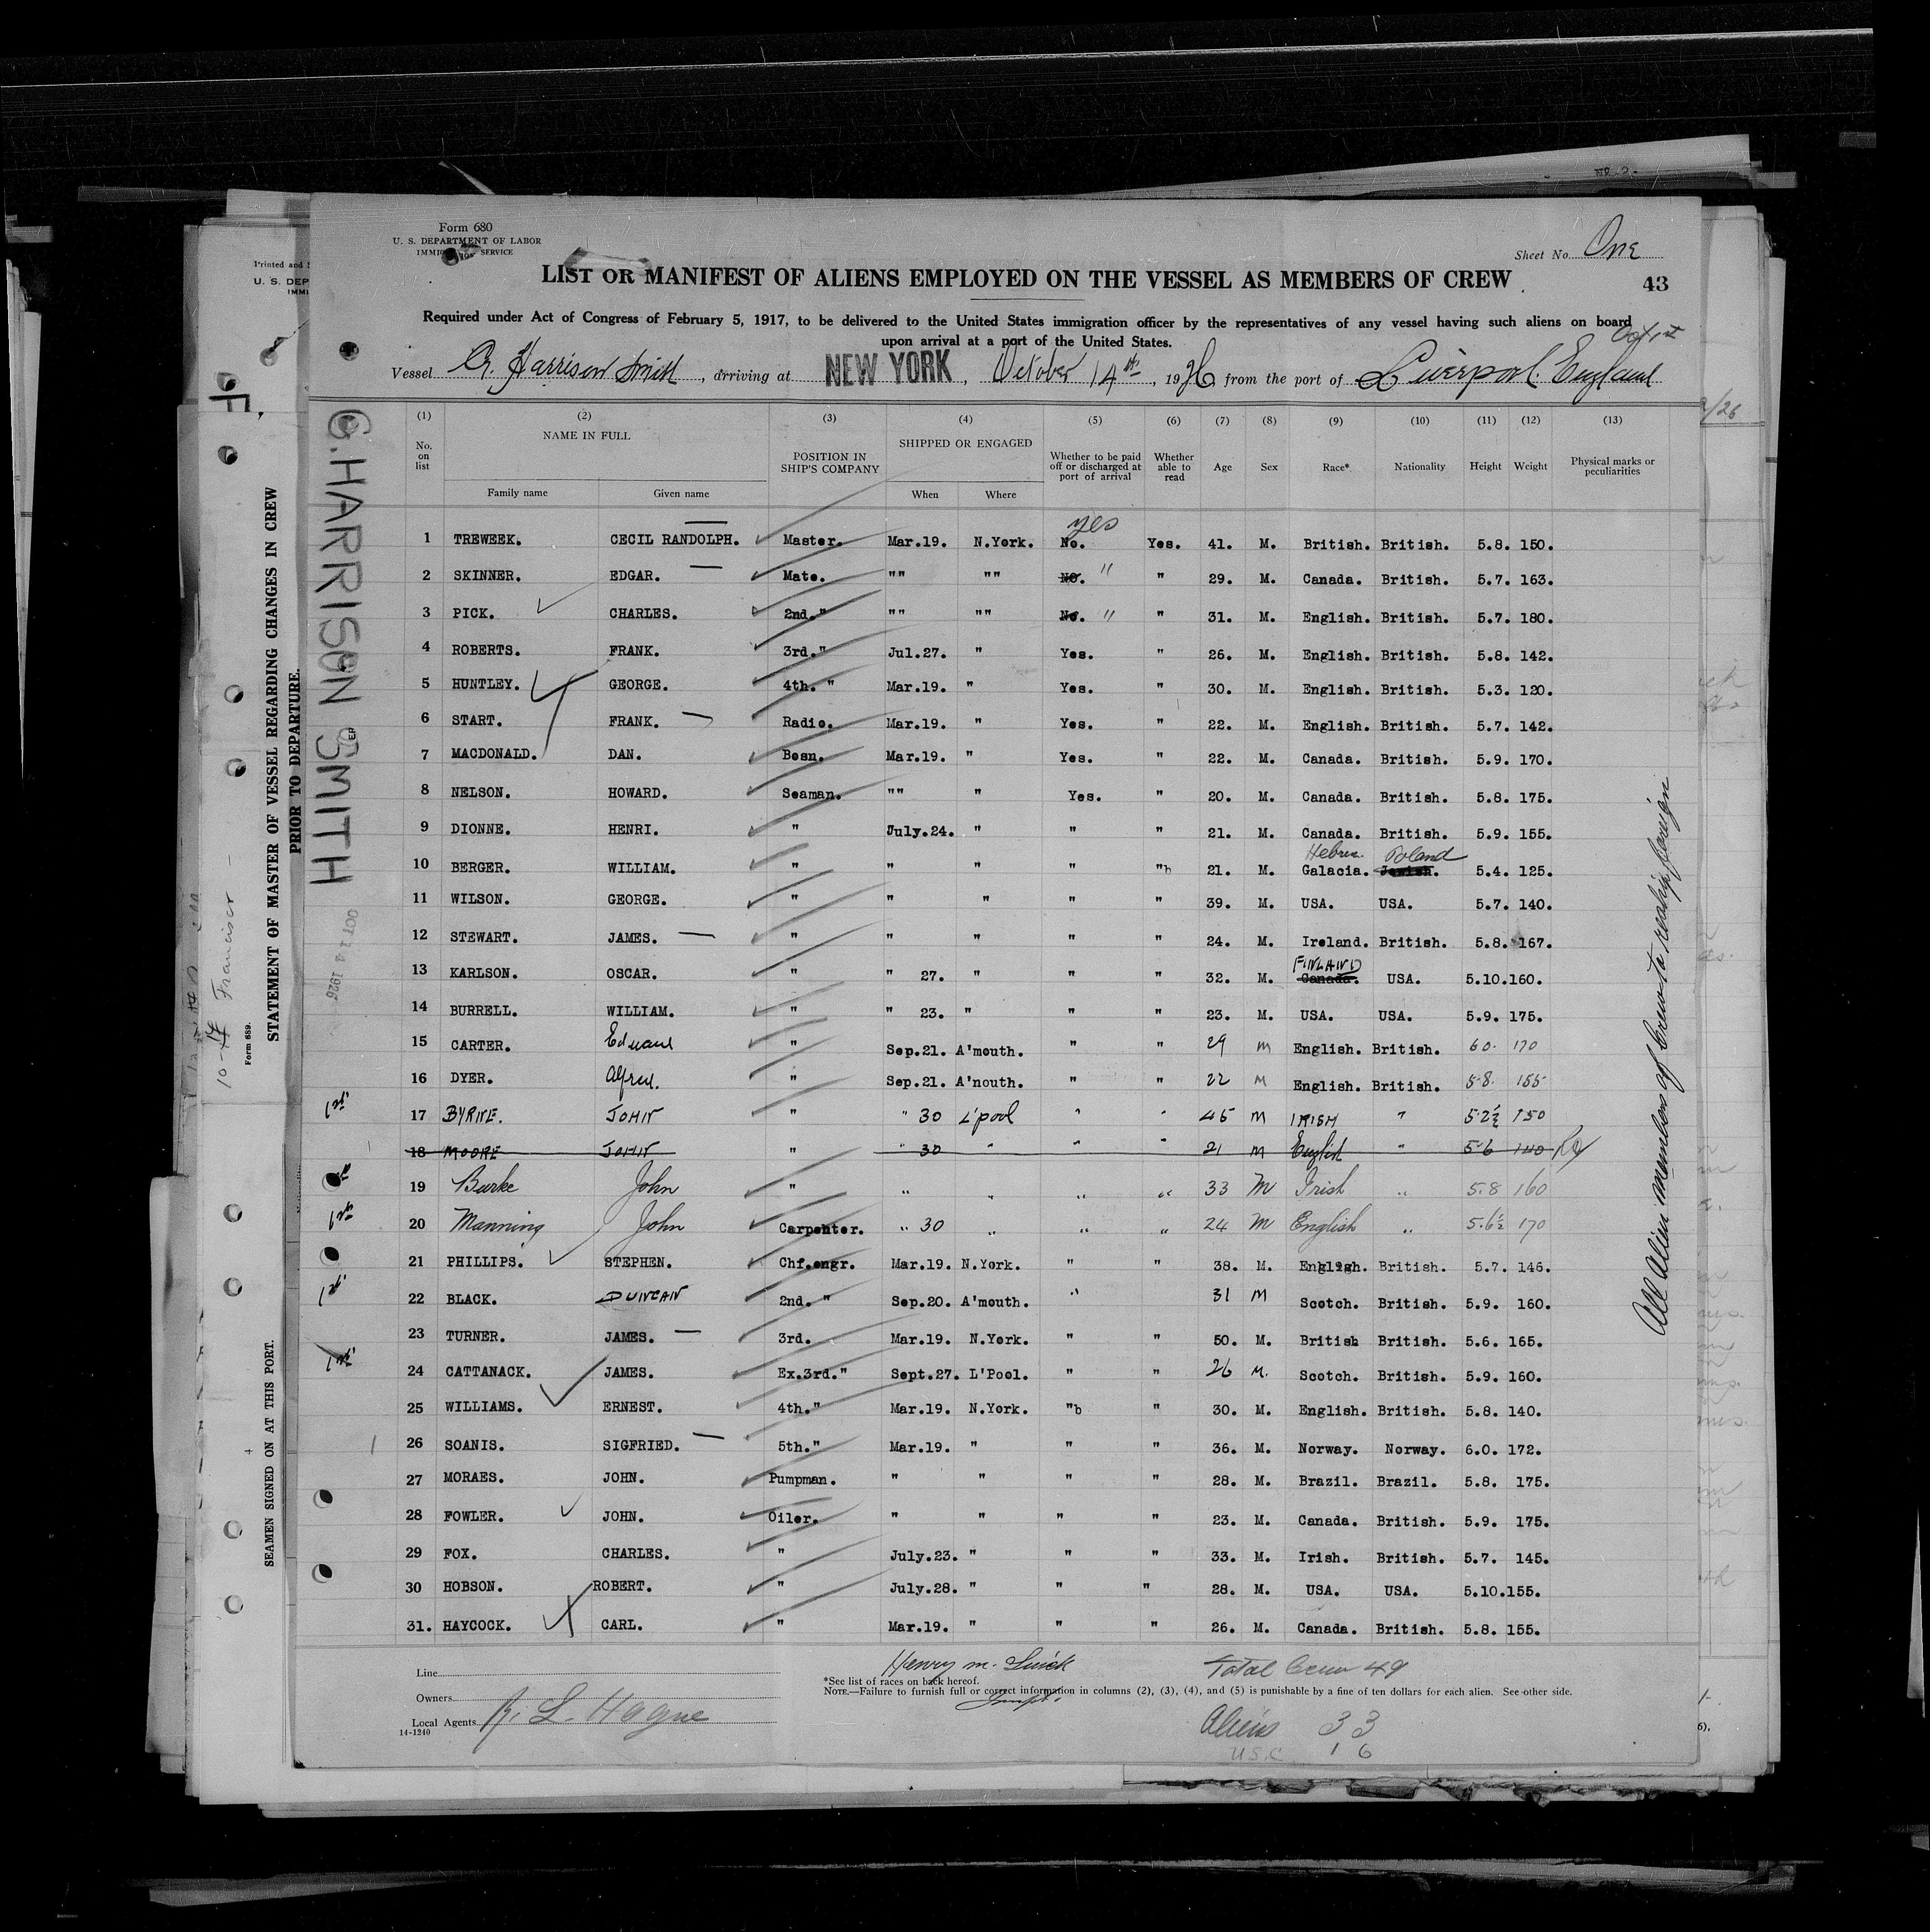 Form 680
U. S. DEPARTMENT OF LABOR
IMMIGRATION SERVICE
Sheet No. One
LIST OR MANIFEST OF ALIENS EMPLOYED ON THE VESSEL AS MEMBERS OF CREW
43
Required under Act of Congress of February 5, 1917, to be delivered to the United States immigration officer by the representatives of any vessel having such aliens on board
upon arrival at a port of the United States.
Oct 1st
Vessel G. Harrison Smith, arriving at NEW YORK, October 14th, 1926, from the port of Liverpool. England
(1) (2) (3) (4) (5) (6) (7) (8) (9) (10) (11) (12) (13)
No. on list NAME IN FULL Family name Given name POSITION IN SHIP'S COMPANY SHIPPED OR ENGAGED When Where Whether to be paid off or discharged at port of arrival Whether able to read Age Sex Race* Nationality Height Weight Physical marks or peculiarities
yes
1 TREWEEK. CECIL RANDOLPH. Master. Mar.19. N.York. No. Yes. 41. M. British. British. 5.8. 150.
2 SKINNER. EDGAR. Mate. "" "" NO. " " 29. M. Canada. British. 5.7. 163.
3 PICK. CHARLES. 2nd." "" "" No. " " 31. M. English. British. 5.7. 180.
4 ROBERTS. FRANK. 3rd." Jul.27. " Yes. " 26. M. English. British. 5.8. 142.
5 HUNTLEY. GEORGE. 4th. " Mar.19. " Yes. " 30. M. English. British. 5.3. 120.
6 START. FRANK. Radio. Mar.19. " Yes. " 22. M. English. British. 5.7. 142.
7 MACDONALD. DAN. Bosn. Mar.19. " Yes. " 22. M. Canada. British. 5.9. 170.
8 NELSON. HOWARD. Seaman. "" " Yes. " 20. M. Canada. British. 5.8. 175.
9 DIONNE. HENRI. " July.24. " " " 21. M. Canada. British. 5.9. 155.
Hebrew. Poland
10 BERGER. WILLIAM. " " " " "b 21. M. Galacia. Jewish. 5.4. 125.
11 WILSON. GEORGE. " " " " " 39. M. USA. USA. 5.7. 140.
12 STEWART. JAMES. " " " " " 24. M. Ireland. British. 5.8. 167.
FINLAND
13 KARLSON. OSCAR. " " 27. " " " 32. M. Canada. USA. 5.10.160.
14 BURRELL. WILLIAM. " " 23. " " " 23. M. USA. USA. 5.9. 175.
15 CARTER. Edward " Sep.21. A'mouth. " " 29 M English. British. 6 0. 170
16 DYER. Alfred. " Sep.21. A'nouth. " " 22 M English. British. 5.8. 155
1st 17 BYRNE. JOHN " " 30 L'pool " " 45 M IRISH " 5.2½ 150
18 MOORE JOHN " " 30 " " " 21 M English " 5.6 140
19 Burke John " " " " " 33 M Irish " 5.8 160
1st 20 Manning John Carpenter. " 30 " " " 24 M English " 5.6½ 170
21 PHILLIPS. STEPHEN. Chf.engr. Mar.19. N.York. " " 38. M. English. British. 5.7. 146.
1st 22 BLACK. DUNCAN 2nd. " Sep.20. A'mouth. " 31 M Scotch. British. 5.9. 160.
23 TURNER. JAMES. 3rd. Mar.19. N.York. " " 50. M. British British. 5.6. 165.
1st 24 CATTANACK. JAMES. Ex.3rd." Sept.27. L'Pool. " " 26 M. Scotch. British. 5.9. 160.
25 WILLIAMS. ERNEST. 4th." Mar.19. N.York. "b " 30. M. English. British. 5.8. 140.
26 SOANIS. SIGFRIED. 5th." Mar.19. " " " 36. M. Norway. Norway. 6.0. 172.
27 MORAES. JOHN. Pumpman. " " " " 28. M. Brazil. Brazil. 5.8. 175.
28 FOWLER. JOHN. Oiler. " " " " 23. M. Canada. British. 5.9. 175.
29 FOX. CHARLES. " July.23. " " " 33. M. Irish. British. 5.7. 145.
30 HOBSON. ROBERT. " July.28. " " " 28. M. USA. USA. 5.10.155.
31. HAYCOCK. CARL. " Mar.19. " " " 26. M. Canada. British. 5.8. 155.
All Alien members of Crew to reship foreign
Line
Owners
Local Agents R. L. Hague
14-1240
Henry M.
*See list of races on back hereof.
NOTE.—Failure to furnish full or correct information in columns (2), (3), (4), and (5) is punishable by a fine of ten dollars for each alien. See other side.
Total Crew 49
Aliens 33
U.S.C. 16
G. HARRISON SMITH
OCT 14 1926
STATEMENT OF MASTER OF VESSEL REGARDING CHANGES IN CREW
PRIOR TO DEPARTURE.
SEAMEN SIGNED ON AT THIS PORT.
Form 689.
Printed and
U. S. DEP
IMMI
Francisco